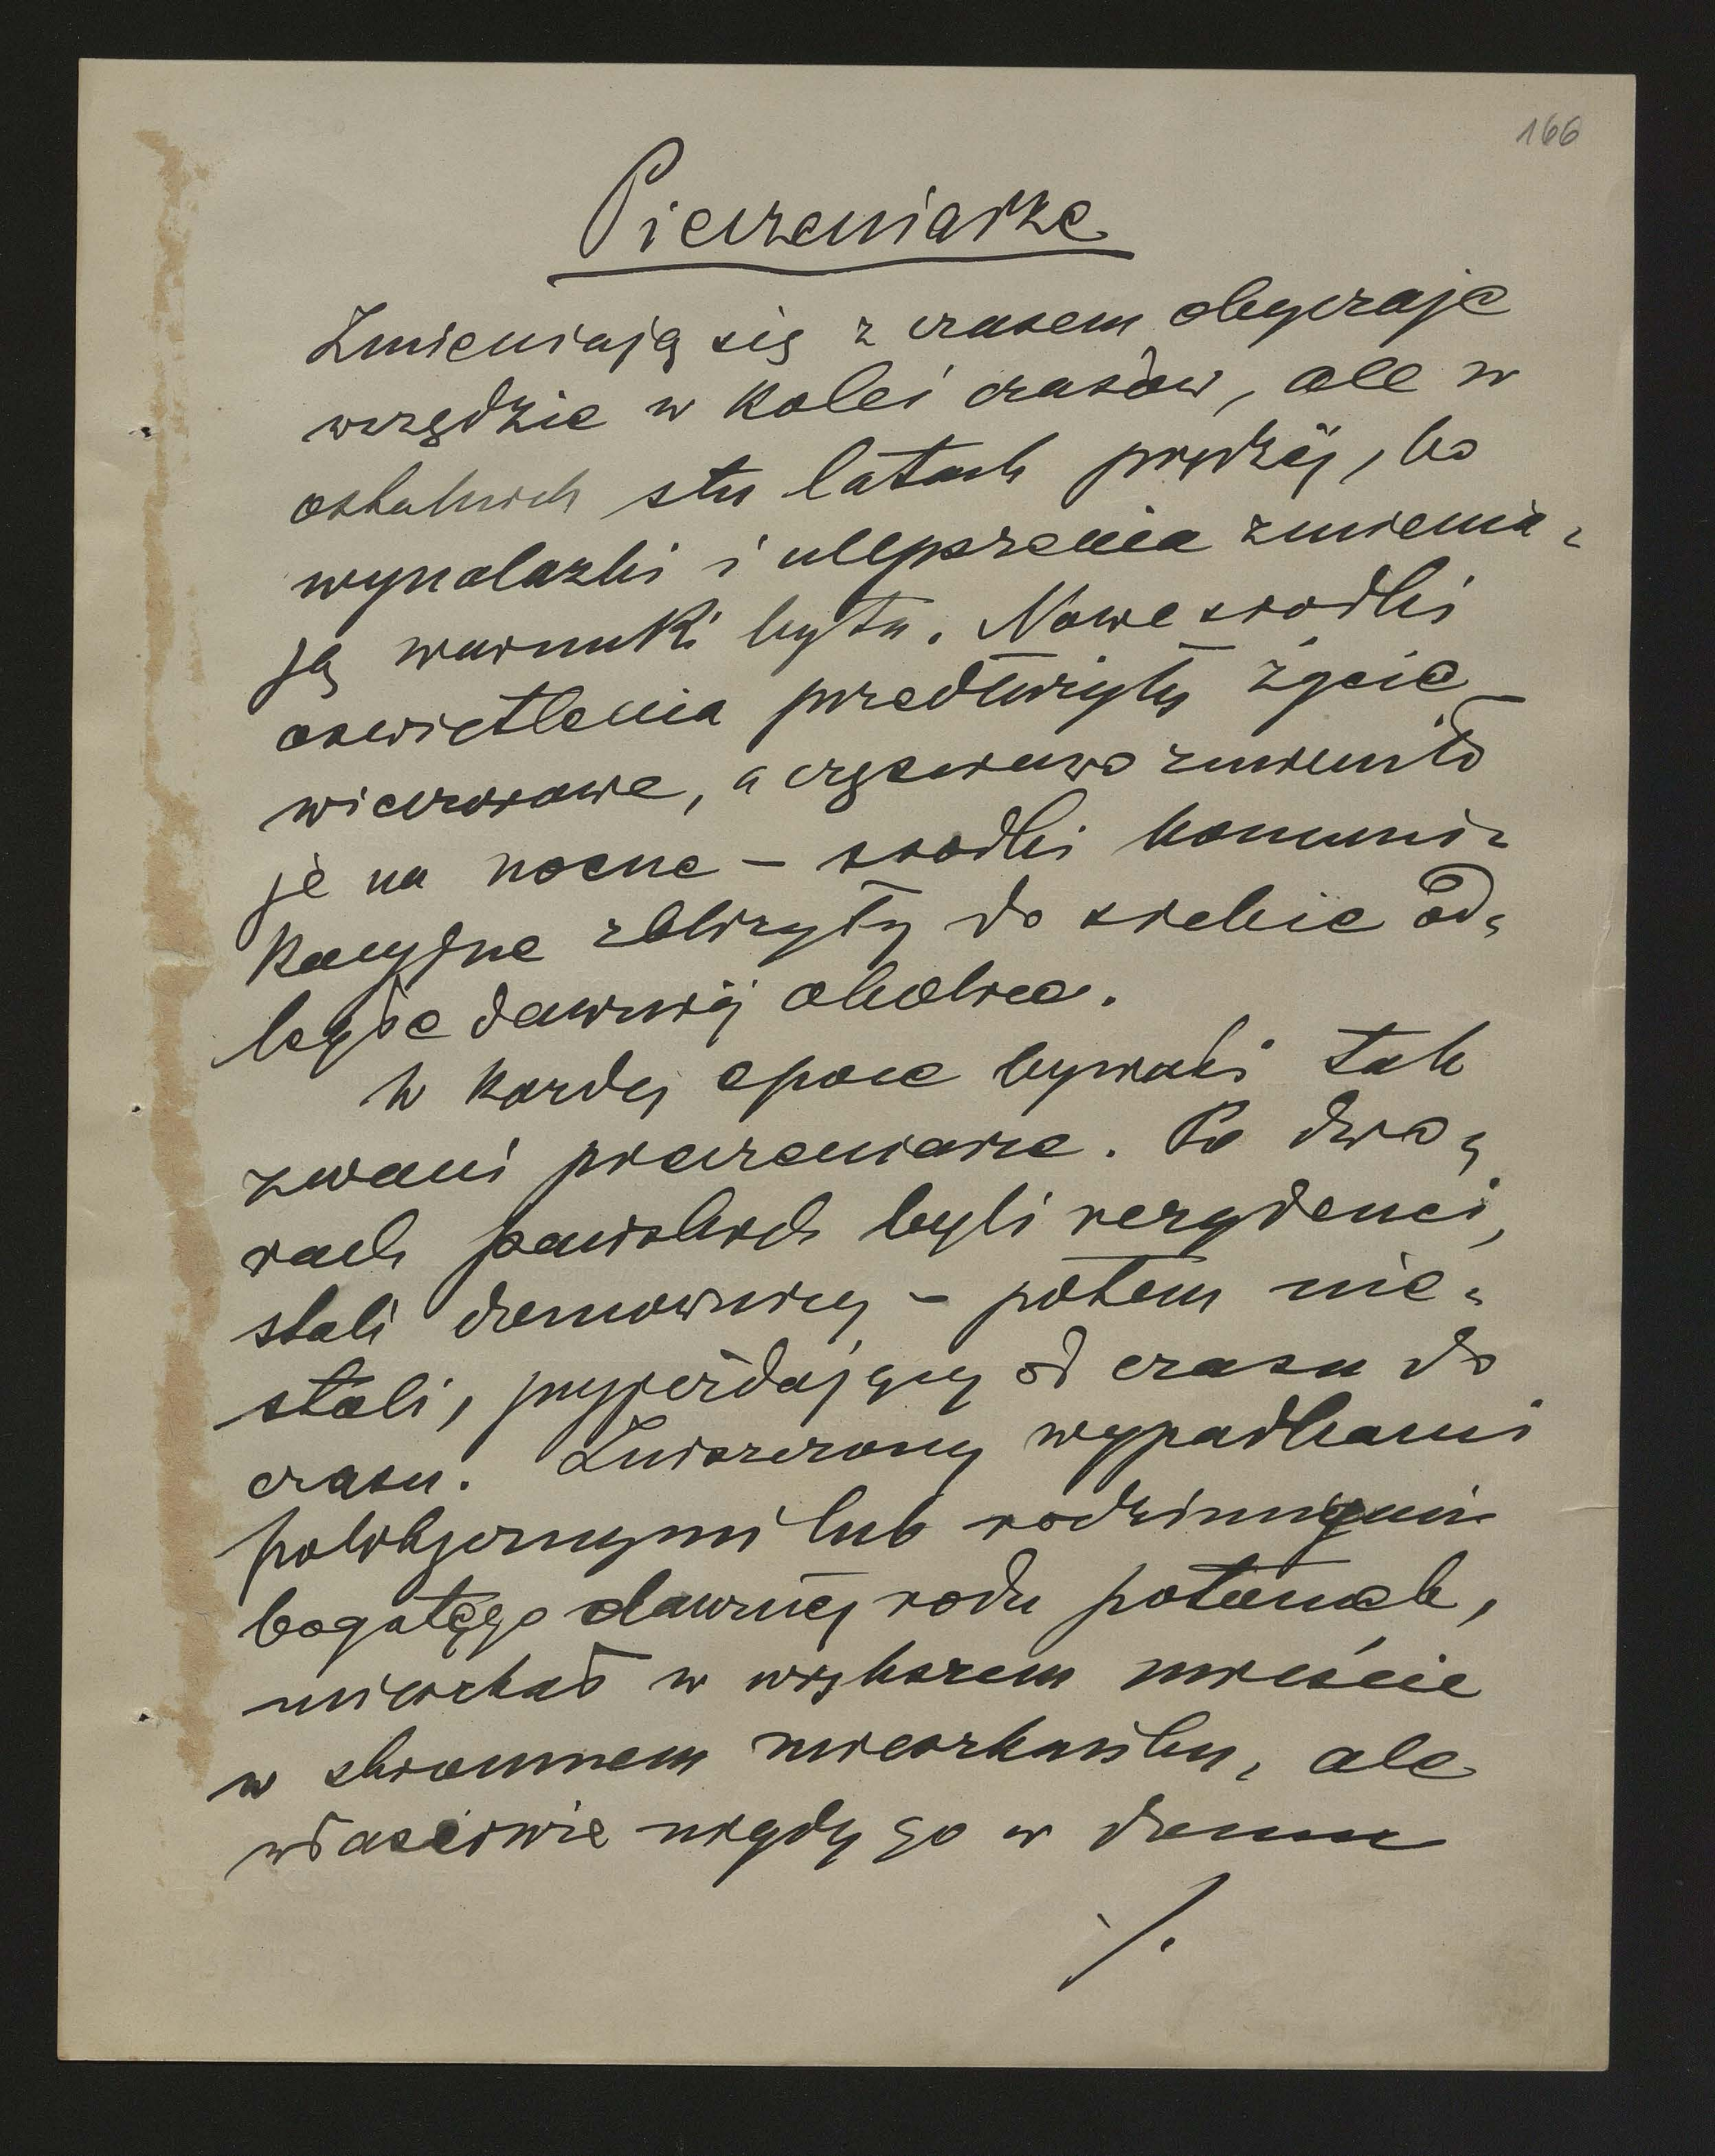 166
Pieczeniarze
Zmieniają się z czasem obyczaje
wszędzie w kolei czasów, ale w
ostatnich stu latach prędzéj, bo
wynalazki i ulepszenia zmienia-
ją warunki bytu. Nowe srodki
oswietlenia przedłużyły życie
wieczorowe, a częściowo zmieniło
je na nocne – srodki komuni-
kacyjne zbliżyły do siebie od-
ległe dawniéj okolice.
W każdej epoce bywali tak
zwani pieczeniarze. Po dwo-
rach pańskich byli rezydenci,
stali domownicy – potem nie-
stali, przyjeżdający od czasu do
czasu. Zniszczony wypadkami
politycznymi lub rodzinnymi
bogatego dawniej rodu potomek,
mieszkał w większem mieście
w skromnem mieszkaniku, ale
właściwie nigdy go w domu
./.